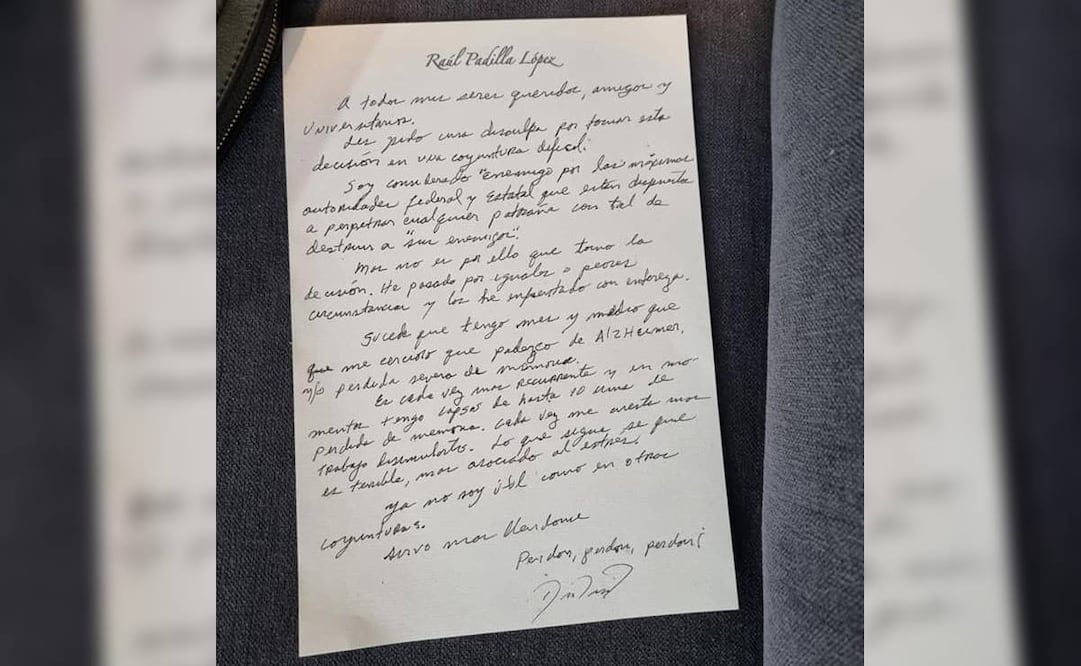 Raúl Padilla López
A todos mis seres queridos, amigos y
Universitarios.
Les pido una disculpa por tomar esta
decisión en una coyuntura difícil.
Soy considerado "enemigo por las máximas
autoridades federal y Estatal que están dispuesta
a perpetrar cualquier patraña con tal de
destruir a "sus enemigos".
Mas no es por ello que tomo la
decisión. He pasado por iguales o peores
circunstancias y los he enfrentado con entrega.
Sucede que tengo mes y medio que
que me cercioro que padezco de AlzHeimer,
y/o perdida severa de memoria.
Es cada vez mas recurrente y en mo
mentos tengo lapsos de hasta 10 mins de
perdida de memoria. Cada vez me cuesta mas
trabajo disimularlo. Lo que sigue se que
es terrible, mas asociado al estres.
Ya no soy útil como en otras
coyunturas.
Sirvo mas
Perdon, perdon, perdon!